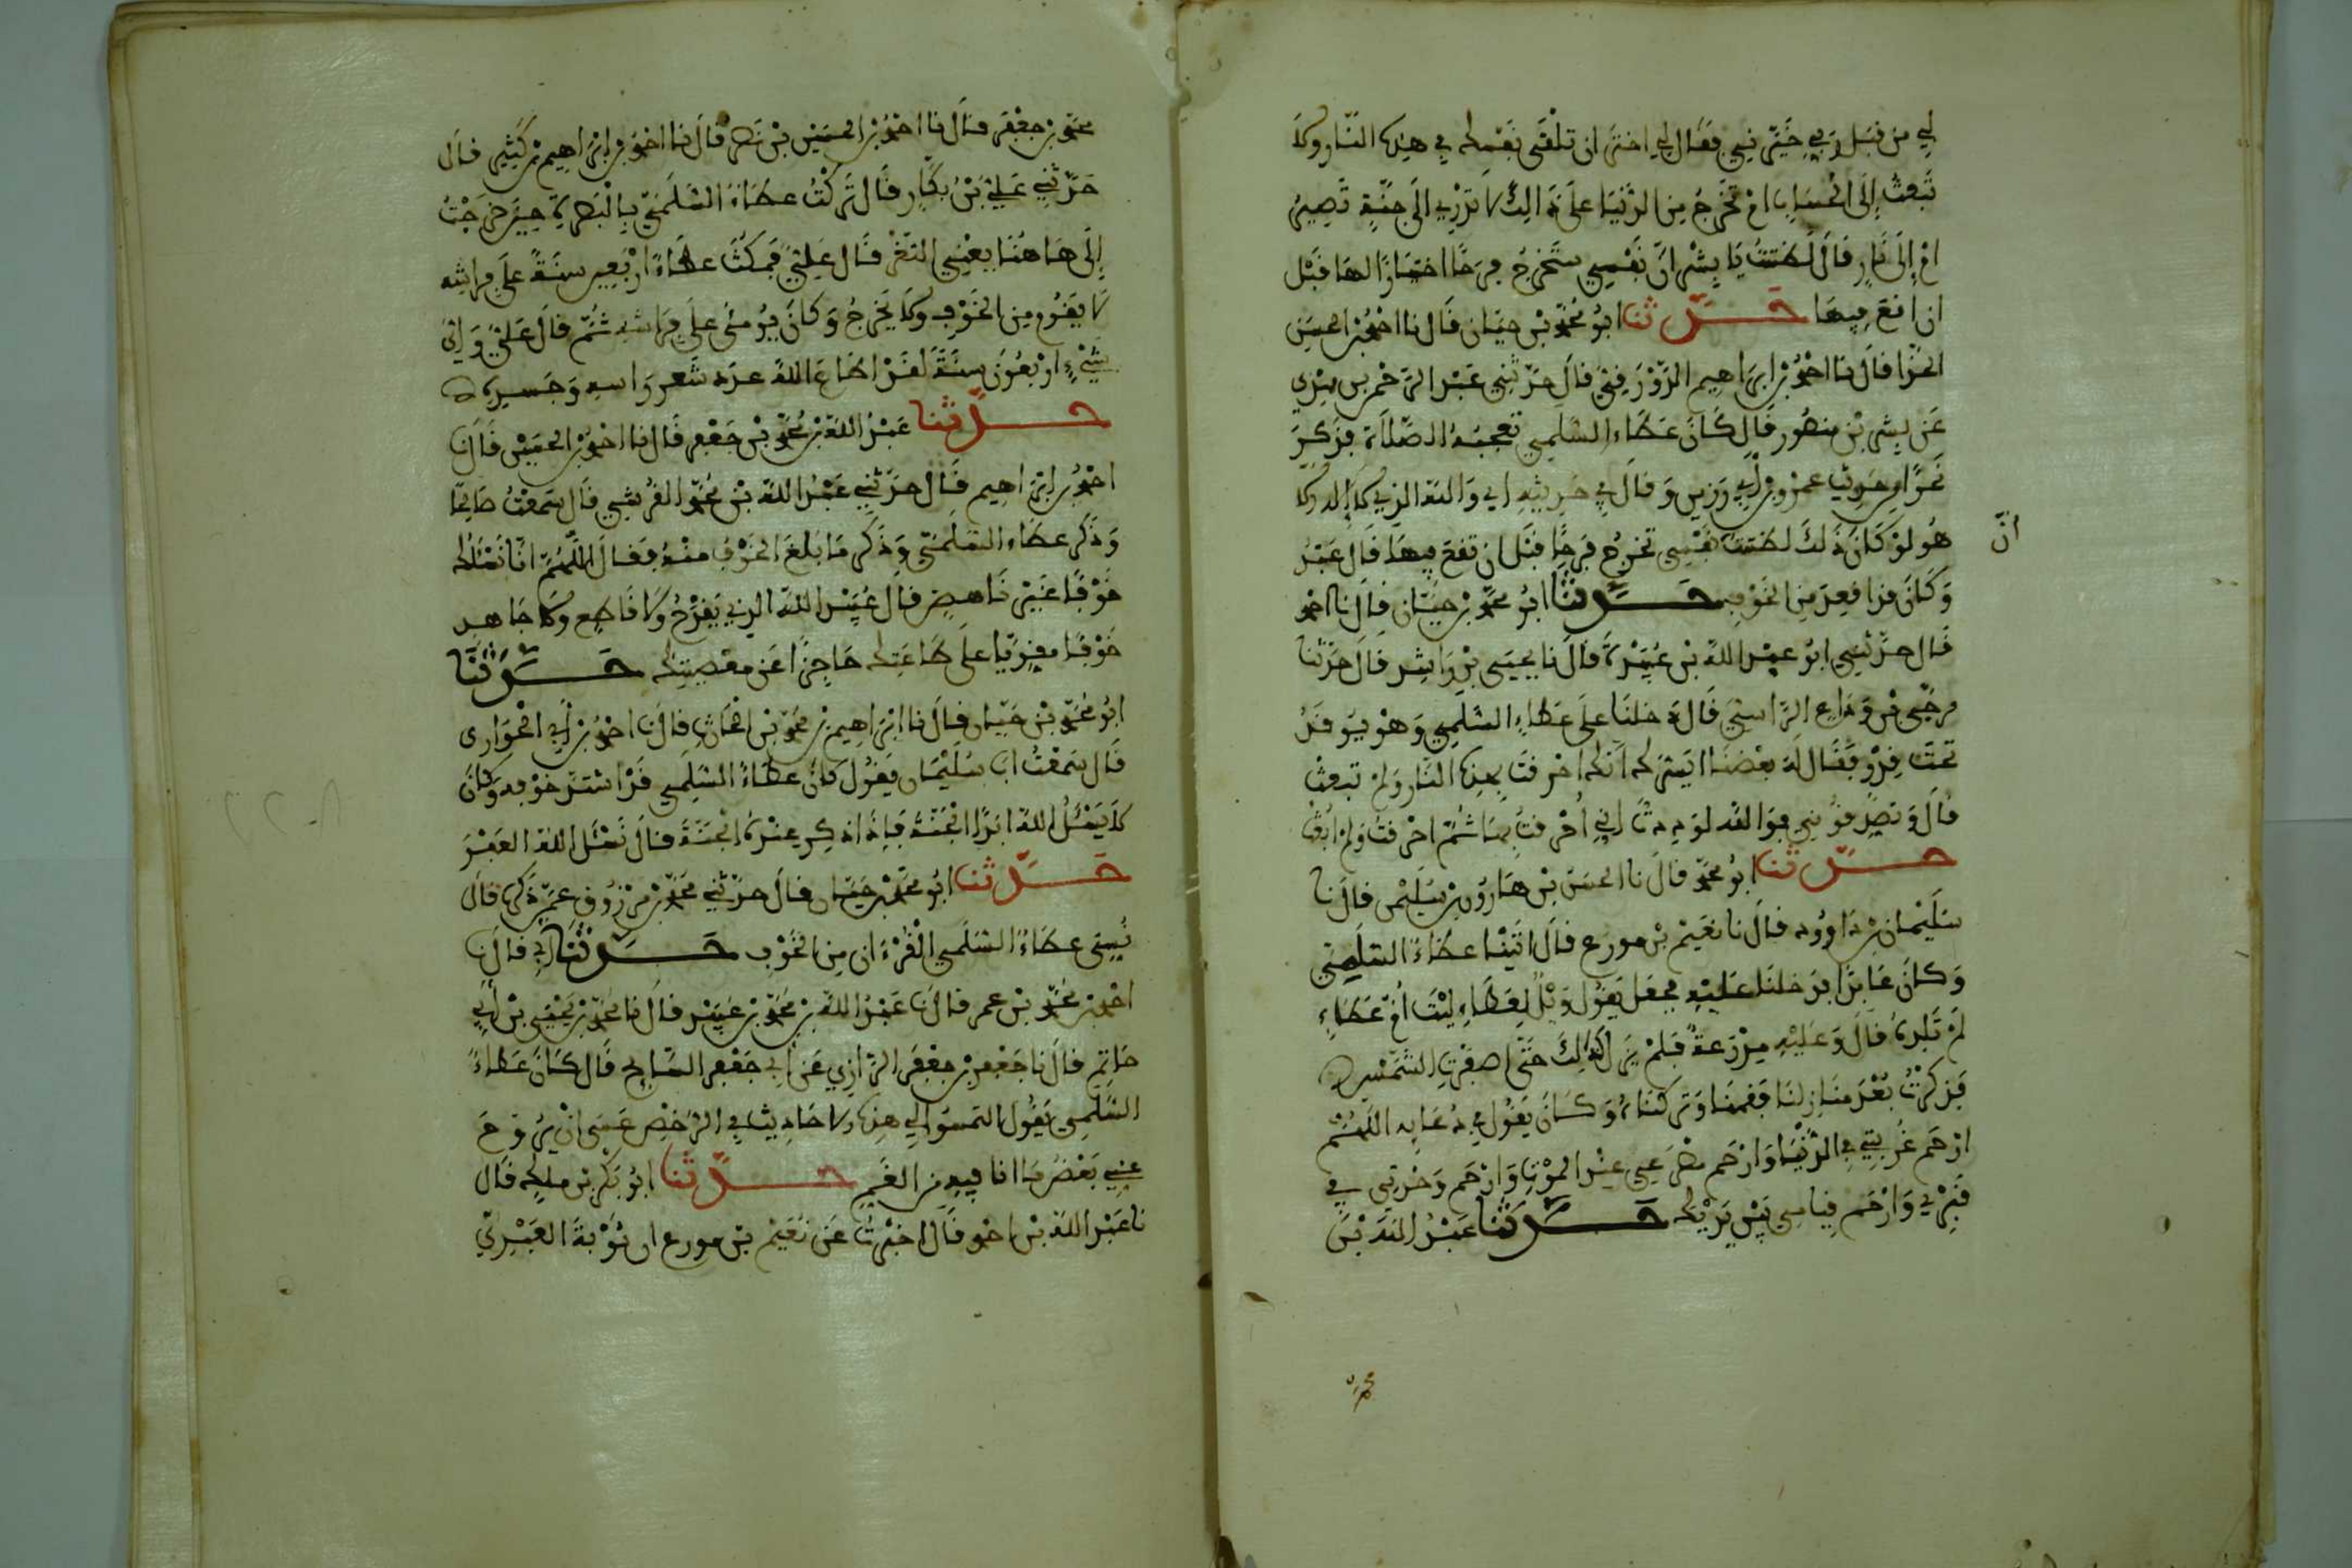 لي من قبل ربي خيرني فقال لي اختر ان تلقى نفسك في هذه النار ولا
تبعث إلى الحساب او تخرج من الدنيا على ذالك لا تدري الى جنة تصير
او إلى نار قال لظننت يا بشر ان نفسي ستخرج فرحا اختيارا لها قبل
ان اقع فيها حدثنا ابو محمد بن حيان قال نا احمد بن الحسين
الحذا قال نا احمد بن ابراهيم الدورقي قال حدثني عبد الرحمن بن مهدي
عن بشر بن منصور قال كان عطاء السلمي تعجبه الصلاة فذكر
نحوا من حديث عمرو بن أبي رزين وقال في حديثه اي والله الذي لا إله إلا
هو لو كان ذلك لظننت نفسي تخرج فرحا قبل ان تقع فيها قال عبد
أنّ
وكان قد اقعد من الخوف حدثنا ابو محمد بن حيان قال نا احمد
قال حدثني ابو عبد الله بن عبيدة قال نا يحيى بن راشد قال حدثنا
مرجى بن وداع الراسبي قال دخلنا على عطاء السلمي وهو يوقد
تحت قدر فقال له بعضنا ايسرك انك احرقت بهذه النار ولم تبعث
قال وتصدقوني فوالله لوددت اني أحرقت بها ثم احرقت ولم ابعث
حدثنا ابو محمد قال نا الحسن بن هارون بن سليمن قال نا
سليمان بن داوود قال نا نعيم بن مورع قال اتينا عطاء السليمي
وكان عابدا فدخلنا عليه فجعل يقول ويل لعطاء ليت أم عطاء
لم تلده قال وعليه مدرعة فلم يزل كذلك حتى اصفرت الشمس
فذكرت بعد منازلنا فقمنا وتركناه وكان يقول في دعايه اللهم
ارحم غربتي في الدنيا وارحم مصرعي عند الموت وارحم وحدتي في
قبري وارحم قيامي بين يديك حدثنا عبد الله بن
محمد بن جعفر قال نا احمد بن الحسين بن نصر قال نا احمد بن ابراهيم بن كثير قال
حدثني علي بن بكار قال تركت عطاء السلمي بالبصرة حين خرجت
إلى هاهنا يعني الثغر قال علي فمكث عطاء اربعين سنة على فراشه
لا يقوم من الخوف ولا يخرج وكان يومئ على فراشه ثم قال علي واي
شيء اربعون سنة لقد اطاع الله عدد شعر راسه وجسده
حدثنا عبد الله بن محمد بن جعفر قال نا احمد بن الحسين قال نا
احمد بن ابراهيم قال حدثني عبد الله بن محمد القرشي قال سمعت صالحا
وذكر عطاء السلمي وذكر ما بلغ الخوف منه فقال اللهم انا نسئلك
خوفا غير ناهض قال عبيد الله الذي يفدح ولا قاطع ولا جاهد
خوفا مقويا على طاعتك حاجزا عن معصيتك حدثنا
ابو محمد بن حيان قال نا ابراهيم بن محمد بن الحارث قال نا احمد بن أبي الحواري
قال سمعت ابا سليمان يقول كان عطاء السلمي قد اشتد خوفه وكان
لا يسئل الله ابدا الجنة فاذا ذكر عنده الجنة قال نسئل الله العفو
حدثنا ابو محمد بن حيان قال حدثني محمد بن مرزوق عمن ذكره قال
نسي عطاء السلمي القرءان من الخوف حدثنا أبي قال نا
احمد بن محمد بن عمر قال نا عبد الله بن محمد بن عبيد قال نا محمد بن يحيى بن أبي
حاتم قال نا جعفر بن جعفر الرازي عن أبي جعفر السائح قال كان عطاء
السلمي يقول التمسوا لي هذه الاحاديث في الرخص عسى ان يروح
عني بعض ما انا فيه من الغم حدثنا ابو بكر بن ملك قال
نا عبد الله بن احمد قال اخبرت عن نعيم بن مورع ان توبة العبدي